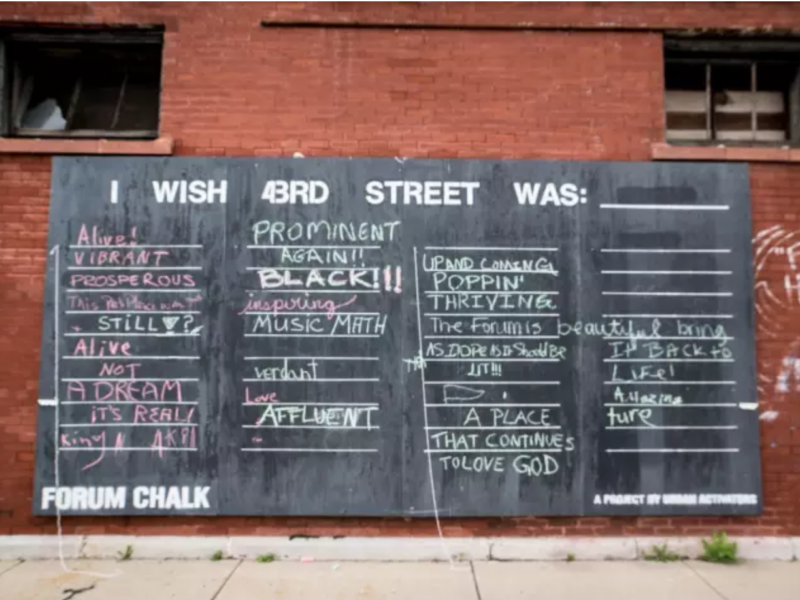 I WISH 43RD STREET WAS:
Alive!
VIBRANT
PROSPEROUS
STILL ?
Alive
NOT
A DREAM
IT'S REAL!
King
PROMINENT
AGAIN!!
BLACK!!!
inspiring
MUSIC MATH
verdant
Love
AFFLUENT
UP AND COMING
POPPIN'
THRIVING
The Forum is beautiful bring
AS DOPE AS IT Should BE
LIT!!!
A PLACE
THAT CONTINUES
TO LOVE GOD
IT BACK to
LIFE!
ture
FORUM CHALK
A PROJECT BY URBAN ACTIVATORS